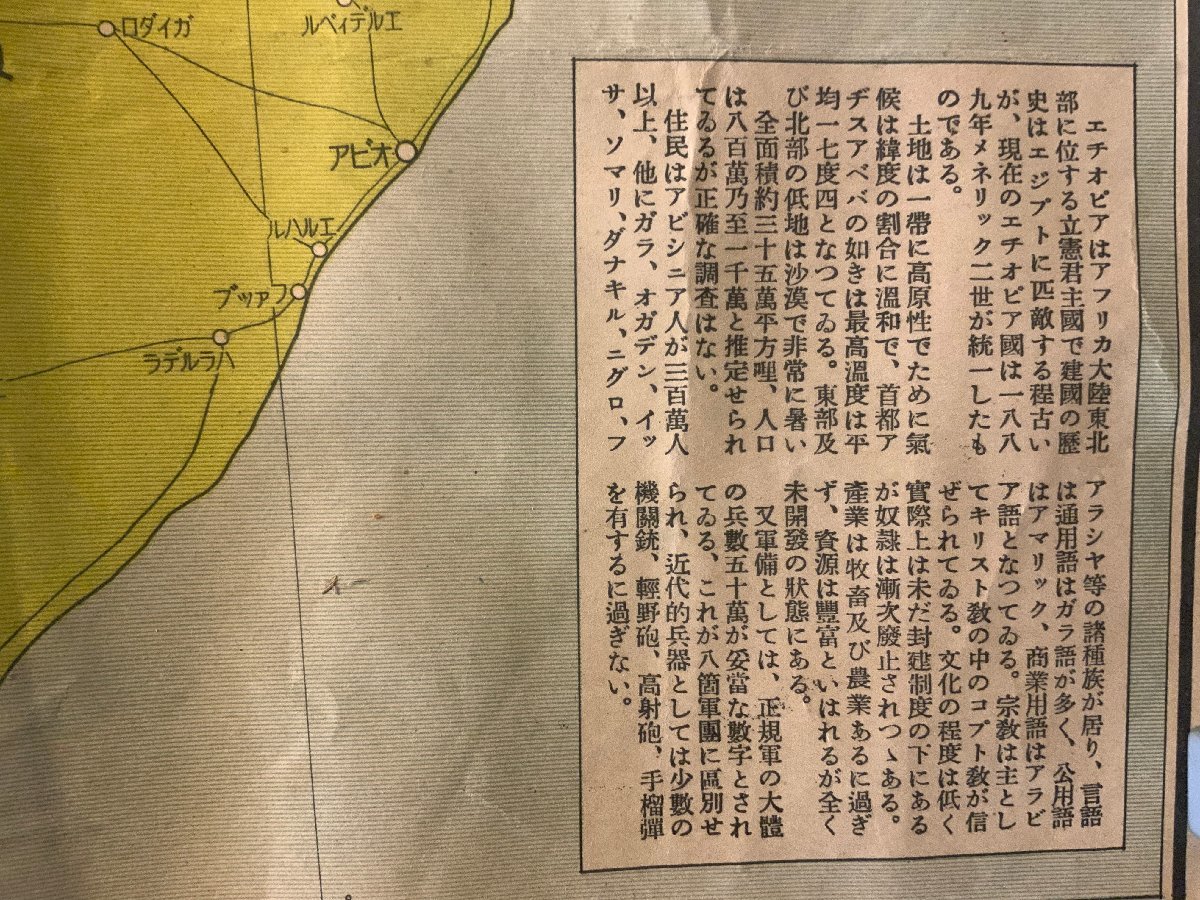 ロダイガ
ルペィデルエ
アピオ
ルハルエ
ブッァフ
ラデルラハ
エチオピアはアフリカ大陸東北
部に位する立憲君主國で建國の歷
史はエジプトに匹敵する程古い
が、現在のエチオピア國は一八八
九年メネリック二世が統一したも
のである。
土地は一帶に高原性でために氣
候は緯度の割合に溫和で、首都ア
ヂスアベバの如きは最高溫度は平
均一七度四となつてゐる。東部及
び北部の低地は沙漠で非常に暑い
全面積約三十五萬平方哩、人口
は八百萬乃至一千萬と推定せられ
てゐるが正確な調査はない。
住民はアビシニア人が三百萬人
以上、他にガラ、オガデン、イッ
サ、ソマリ、ダナキル、ニグロ、フ
アラシヤ等の諸種族が居り、言語
は通用語はガラ語が多く、公用語
はアマリック、商業用語はアラビ
ア語となつてゐる。宗敎は主とし
てキリスト敎の中のコプト敎が信
ぜられてゐる。文化の程度は低く
實際上は未だ封建制度の下にある
が奴隷は漸次廢止されつゝある。
產業は牧畜及び農業あるに過ぎ
ず、資源は豐富といはれるが全く
未開發の狀態にある。
又軍備としては、正規軍の大體
の兵數五十萬が妥當な數字とされ
てゐる、これが八箇軍團に區別せ
られ、近代的兵器としては少數の
機關銃、輕野砲、高射砲、手榴彈
を有するに過ぎない。